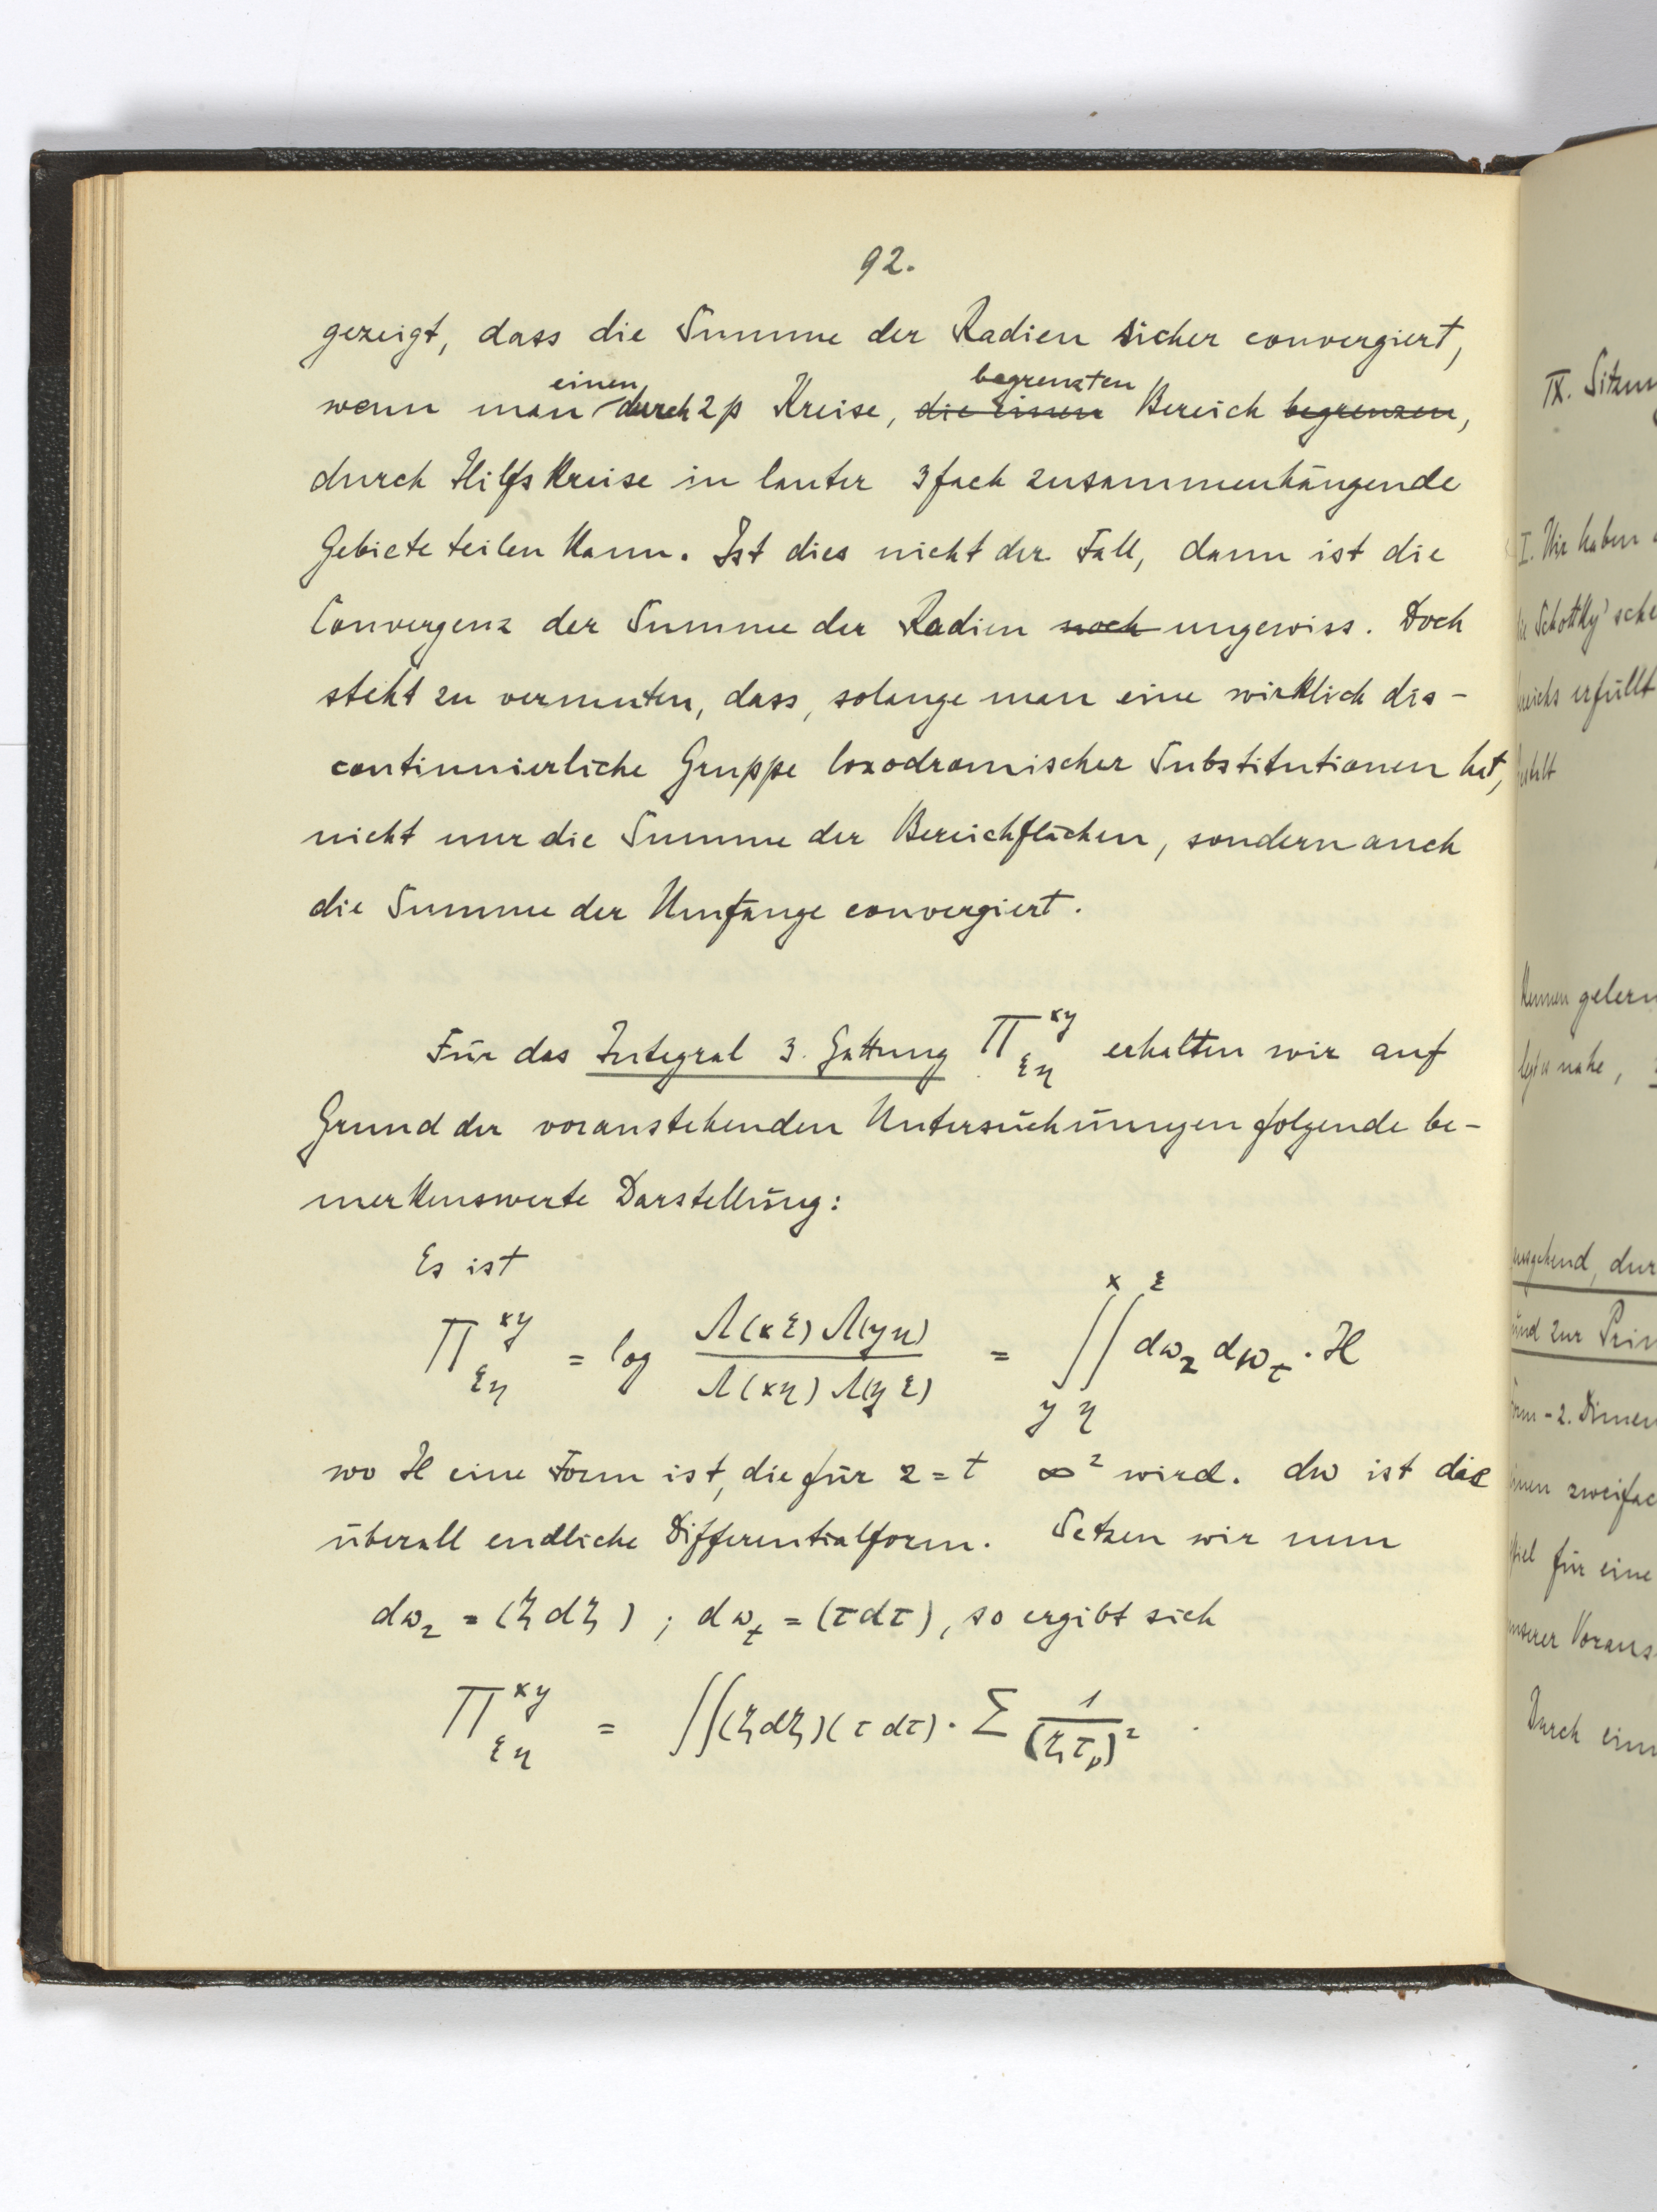 92.
gezeigt, dass die Summe der Radien sicher convergiert,
wenn man einen durch 2p Kreise, ~~die einen~~ begrenzten Bereich ~~begrenzen~~,
durch Hilfskreise in lauter 3fach zusammenhängende
Gebiete teilen kann. Ist dies nicht der Fall, dann ist die
Convergenz der Summe der Radien ~~noch~~ ungewiss. Doch
steht zu vermuten, dass, solange man eine wirklich dis-
continuierliche Gruppe loxodromischer Substitutionen hat,
nicht nur die Summe der Bereichflächen, sondern auch
die Summe der Umfänge convergiert.
Für das Integral 3. Gattung $\Pi^{xy}_{\xi\eta}$ erhalten wir auf
Grund der voranstehenden Untersuchungen folgende be-
merkenswerte Darstellung:
Es ist
$\Pi^{xy}_{\xi\eta} = \log \frac{\Lambda(x\xi)\Lambda(y\eta)}{\Lambda(x\eta)\Lambda(y\xi)} = \int_y^x\int_\eta^\xi d\omega_z d\omega_t \cdot H$
wo H eine Form ist, die für z = t ∞² wird. dω ist die
überall endliche Differentialform. Setzen wir nun
$d\omega_z = (\zeta d\zeta)$ ; $d\omega_t = (\tau d\tau)$, so ergibt sich
$\Pi^{xy}_{\xi\eta} = \iint (\zeta d\zeta)(\tau d\tau) \cdot \sum \frac{1}{(\zeta\tau_\nu)^2}$.
IX.
I. Wir haben
erfüllt
gelern
nahe,
dur
und zur
für eine
unserer
Durch